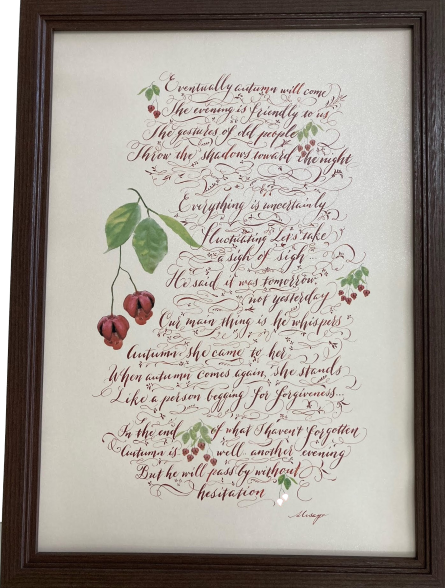 Eventually autumn will come
The evening is friendly to us
The gestures of old people
Throw the shadows toward the night
Everything is uncertainly
fluctuating Let's take
a sigh of sigh
He said it was tomorrow,
not yesterday
Our main thing is he whispers
Autumn she came to her
When autumn comes again, she stands
Like a person begging for forgiveness...
In the end of what I haven't forgotten
Autumn is well another evening
But he will pass by without
hesitation